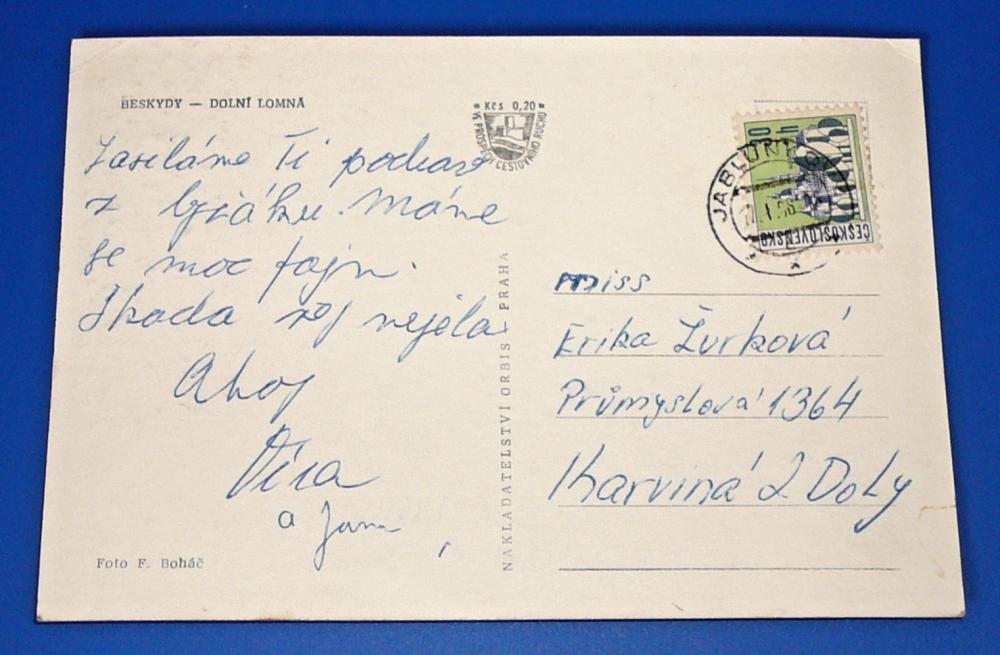 BESKYDY — DOLNÍ LOMNÁ
Kčs 0,20
VE PROSPĚCH CESTOVNÍHO RUCHU
Zasíláme Ti pozdrav
z lyžáku. Máme
se moc fajn.
Škoda žes nejela
Ahoj
Věra
a Jana
Foto F. Boháč
NAKLADATELSTVÍ ORBIS PRAHA
30 h
ČESKOSLOVENSKO
JABLUNKOV
miss
Erika Žurková
Průmyslová 1364
Karviná 2 Doly